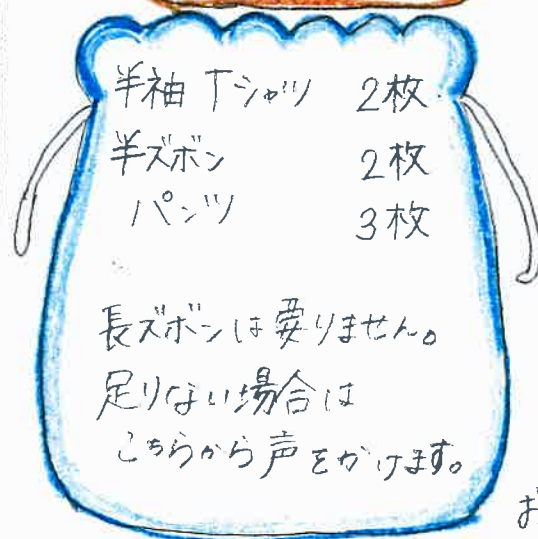 半袖Tシャツ 2枚
半ズボン 2枚
パンツ 3枚
長ズボンは要りません。
足りない場合は
こちらから声をかけます。
お